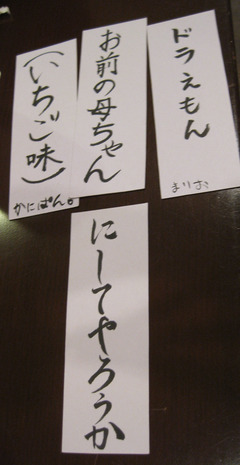 ドラえもん
まりお
お前の母ちゃん
(いちご味)
かにぱん。
にしてやろうか